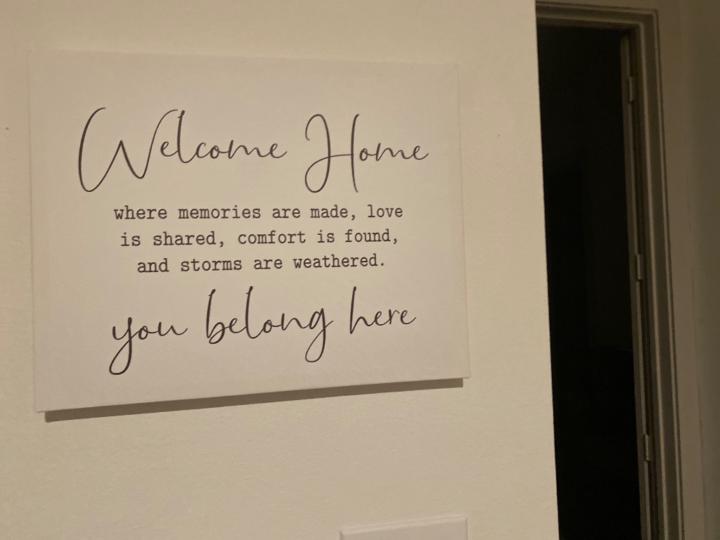 Welcome Home
where memories are made, love
is shared, comfort is found,
and storms are weathered.
you belong here